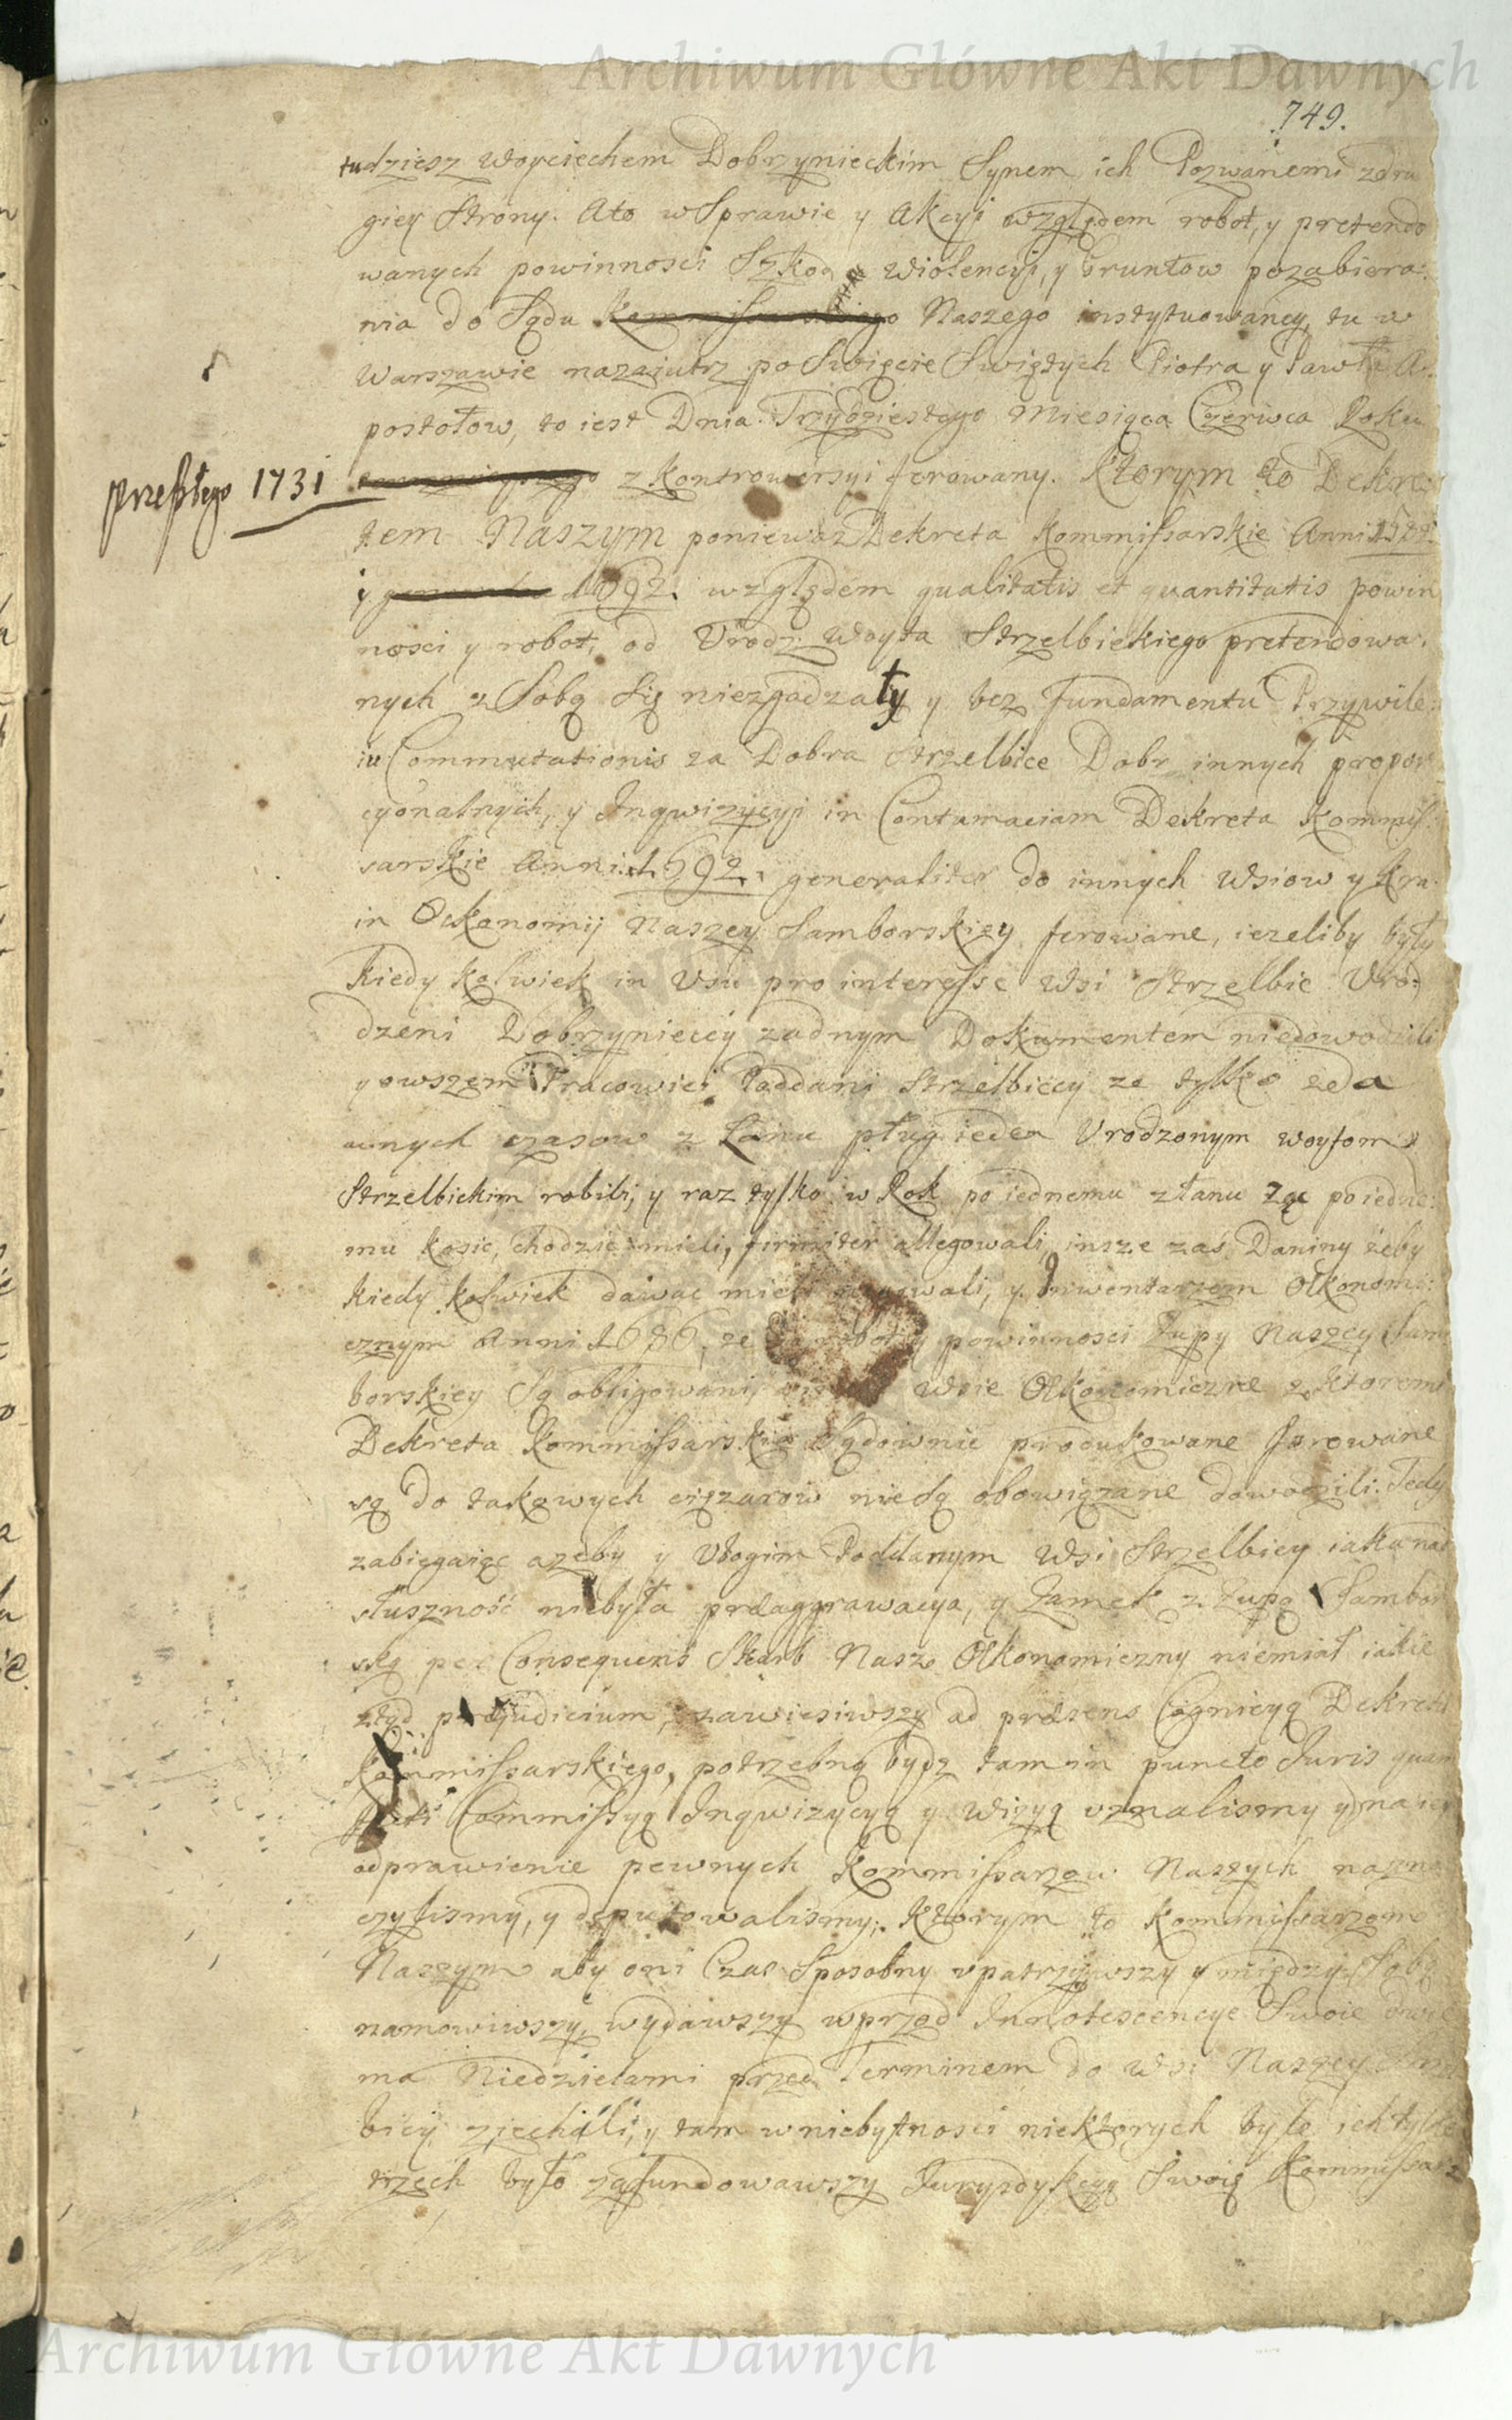 Archiwum Główne Akt Dawnych
749.
tudziesz Woyciechem Dobrzynieckim Synem ich Pozwanemi zdru
giey Strony. Ato wSprawie y Akcyi względem robot, y pretendo
wanych powinnosci Szkod Wiolencyi, y Gruntow pozabiera:
nia do Sądu Kommissarskiego Naszego instytuowaney, tu w
Warszawie nazaiutrz po Swięcie Swiętych Piotra y Pawła A:
postołow, to iest Dnia Trzydziestego Miesiąca Czerwca Roku
przeszłego 1731
z Kontrowersyi ferowany. Ktorym to Dekre:
tem Naszym poniewaz Dekreta Kommissarskie Anni
y 1692. względem qualitatis et quantitatis powin
nosci y robot, od Urodz: Woyta Strzelbickiego pretendowa:
nych z Sobą Się niezgadzały y bez fundamentu Przywile:
iu Commutationis za Dobra Strzelbice Dobr innych propor
cyonalnych, y Inqwizycyi in Contumaciam Dekreta Kommis:
sarskie Anni 1692. generaliter do innych Wsiow y Kra:
in Oekonomij Naszey Samborskiey ferowane, iezeliby były
kiedykolwiek in Usu pro interesse Wsi Strzelbic Uro:
dzeni Dobrzynieccy zadnym Dokumentem niedowodzili
y owszem Pracowici Poddani Strzelbiccy ze tylko zda
wnych czasow z Łanu pług ieden Urodzonym Woytom
Strzelbickim robili, y raz tylko w Rok po iednemu złanu żąc poiedne:
mu kosic, chodzic mieli, firmiter allegowali, insze zas Daniny żeby
kiedykolwiek dawac mieli negowali, y Inwentarzem Oekonomi:
cznym Anni 1686, ze do robot y powinnosci Zupy Naszey Sam
borskiey Są obligowani, Wsie Oekonomiczne z ktoremi
Dekreta Kommissarskie Sądownie produkowane ferowane
są do takowych cięzarow nieSą obowiązane dowodzili. Tedy
zabiegaiąc azeby y Ubogim Poddanym Wsi Strzelbicy iaka nad
słuszność niebyła praeaggrawacya, y Zamek z Zupą Sambor
ską per Consequens Skarb Nasz Oekonomiczny niemiał iakie
ztąd praejudicium, zawiesiwszy ad praesens Cognicyą Dekretu
Kommissarskiego, potrzebną bydz tam in puncto Juris quam
facti Commissyą Inqwizycyą y Wizyą uznalismy y na iey
odprawienie pewnych Kommissarzow Naszych nazna
czylismy, y deputowalismy; Ktorym to Kommissarzom
Naszym aby oni Czas Sposobny upatrzywszy y między Sobą
namowiwszy, wydawszy wprzod Innotescencye Swoie dwie
ma Niedzielami przed Terminem do Wsi Naszey Strzel
bicy ziechali, y tam wniebytnosci niektorych byle ich tylko
trzech było zafundowawszy Jurysdykcyą Swoię Kommissar
Archiwum Główne Akt Dawnych